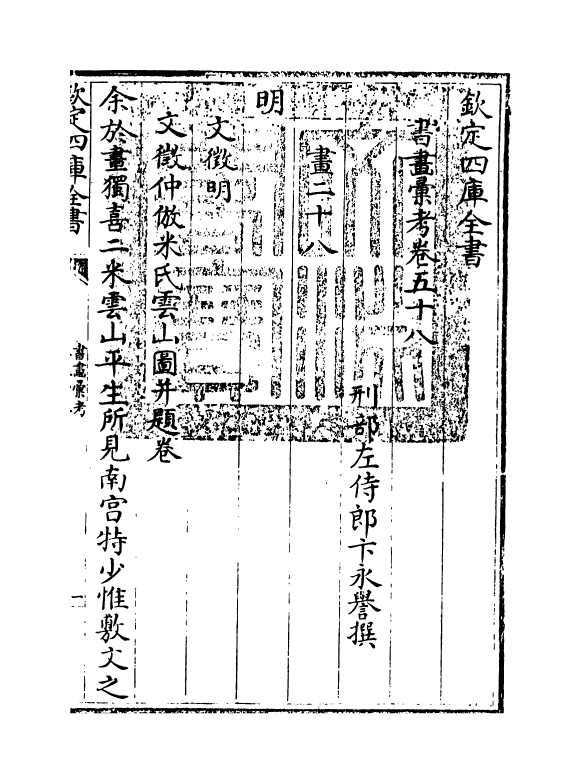 欽定四庫全書
書畫彚考卷五十八
刑部左侍郎卞永譽撰
畫二十八
明
文徵明
文徵仲倣米氏雲山圖并題卷
余於畫獨喜二米雲山平生所見南宫特少惟敷文之
欽定四庫全書
書畫彚考
一